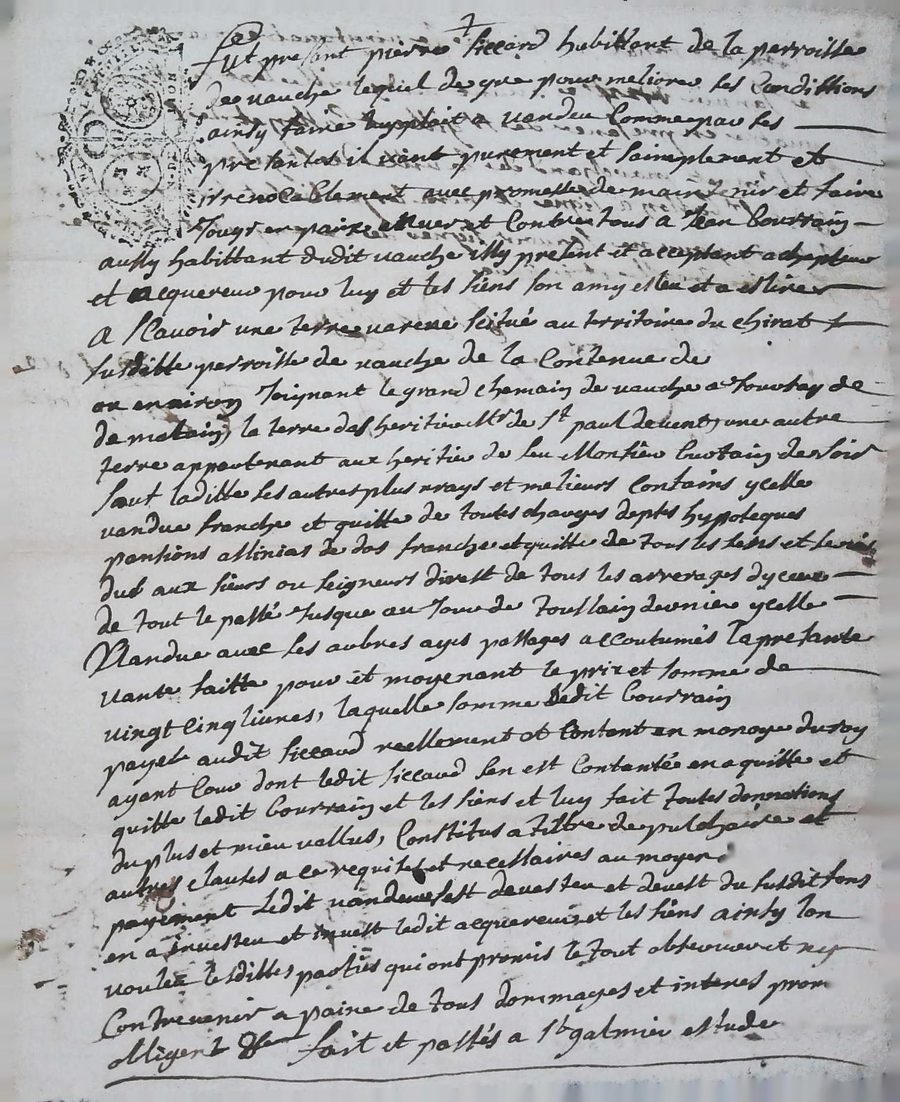 Fut presant pierre siccard habittent de la perroisse
de vauche lequel de gre pour meliore ses Condittions
ainsy faire luy plait a vandeu Comme par ses
presantes il vant purement et saimplement et
irrevocablement avec promesse de maintenir et faire
Jouyr en paix envers et Contre tous a Jean bourrain
aussy habittant dudit vauche issy present et acceptent achepteur
et acquereur pour luy et les siens son amy esleu et a eslire
A scavoir une terre varene scitué au territoire du chirat
susditte perroisse de vauche de la Contenue de
ou environ Joignant le grand chemain de vauche a de
de matain, la terre des heritiers Mr de st paul de vent, une autre
terre appartenant aux heritie de feu Montieu de soir
sauf laditte les autres plus vrays et melieurs Contains ycelle
vandue franche et quitte de toutes charges depts hypoteques
pantions de dos franche et quitte de tous les sens et servis
dus aux sieurs ou seigneurs divest de tous les arrerages dyceux
de tout le passé Jusque au Jour de Toussain dernier ycelle
Vandue avec ses aubres ayes passages accoutumés la presante
vante faitte pour et moyenant le prix et somme de
vingt cinq livres, laquelle somme ledit bourrain
payet audit siccard reellement et Contant en monoye du roy
ayant Cour dont ledit siccard sen est Contanté en a quitte et
quitte ledit bourrain et les siens et luy fait toutes donnations
du plus et mieu vallus, Constitus a tiltre de et
autres clauses a ce requises et necessaires au moyen
payement ledit vandeur sest devesteu et devest du susdit fons
en a investeu et invest ledit acquereur et les siens ainsy lon
vouleu lesdittes parties qui ont promis le tout observer et ny
Contrevenir a paine de tous dommages et interes prom
obligent &c fait et passés a st galmier estude